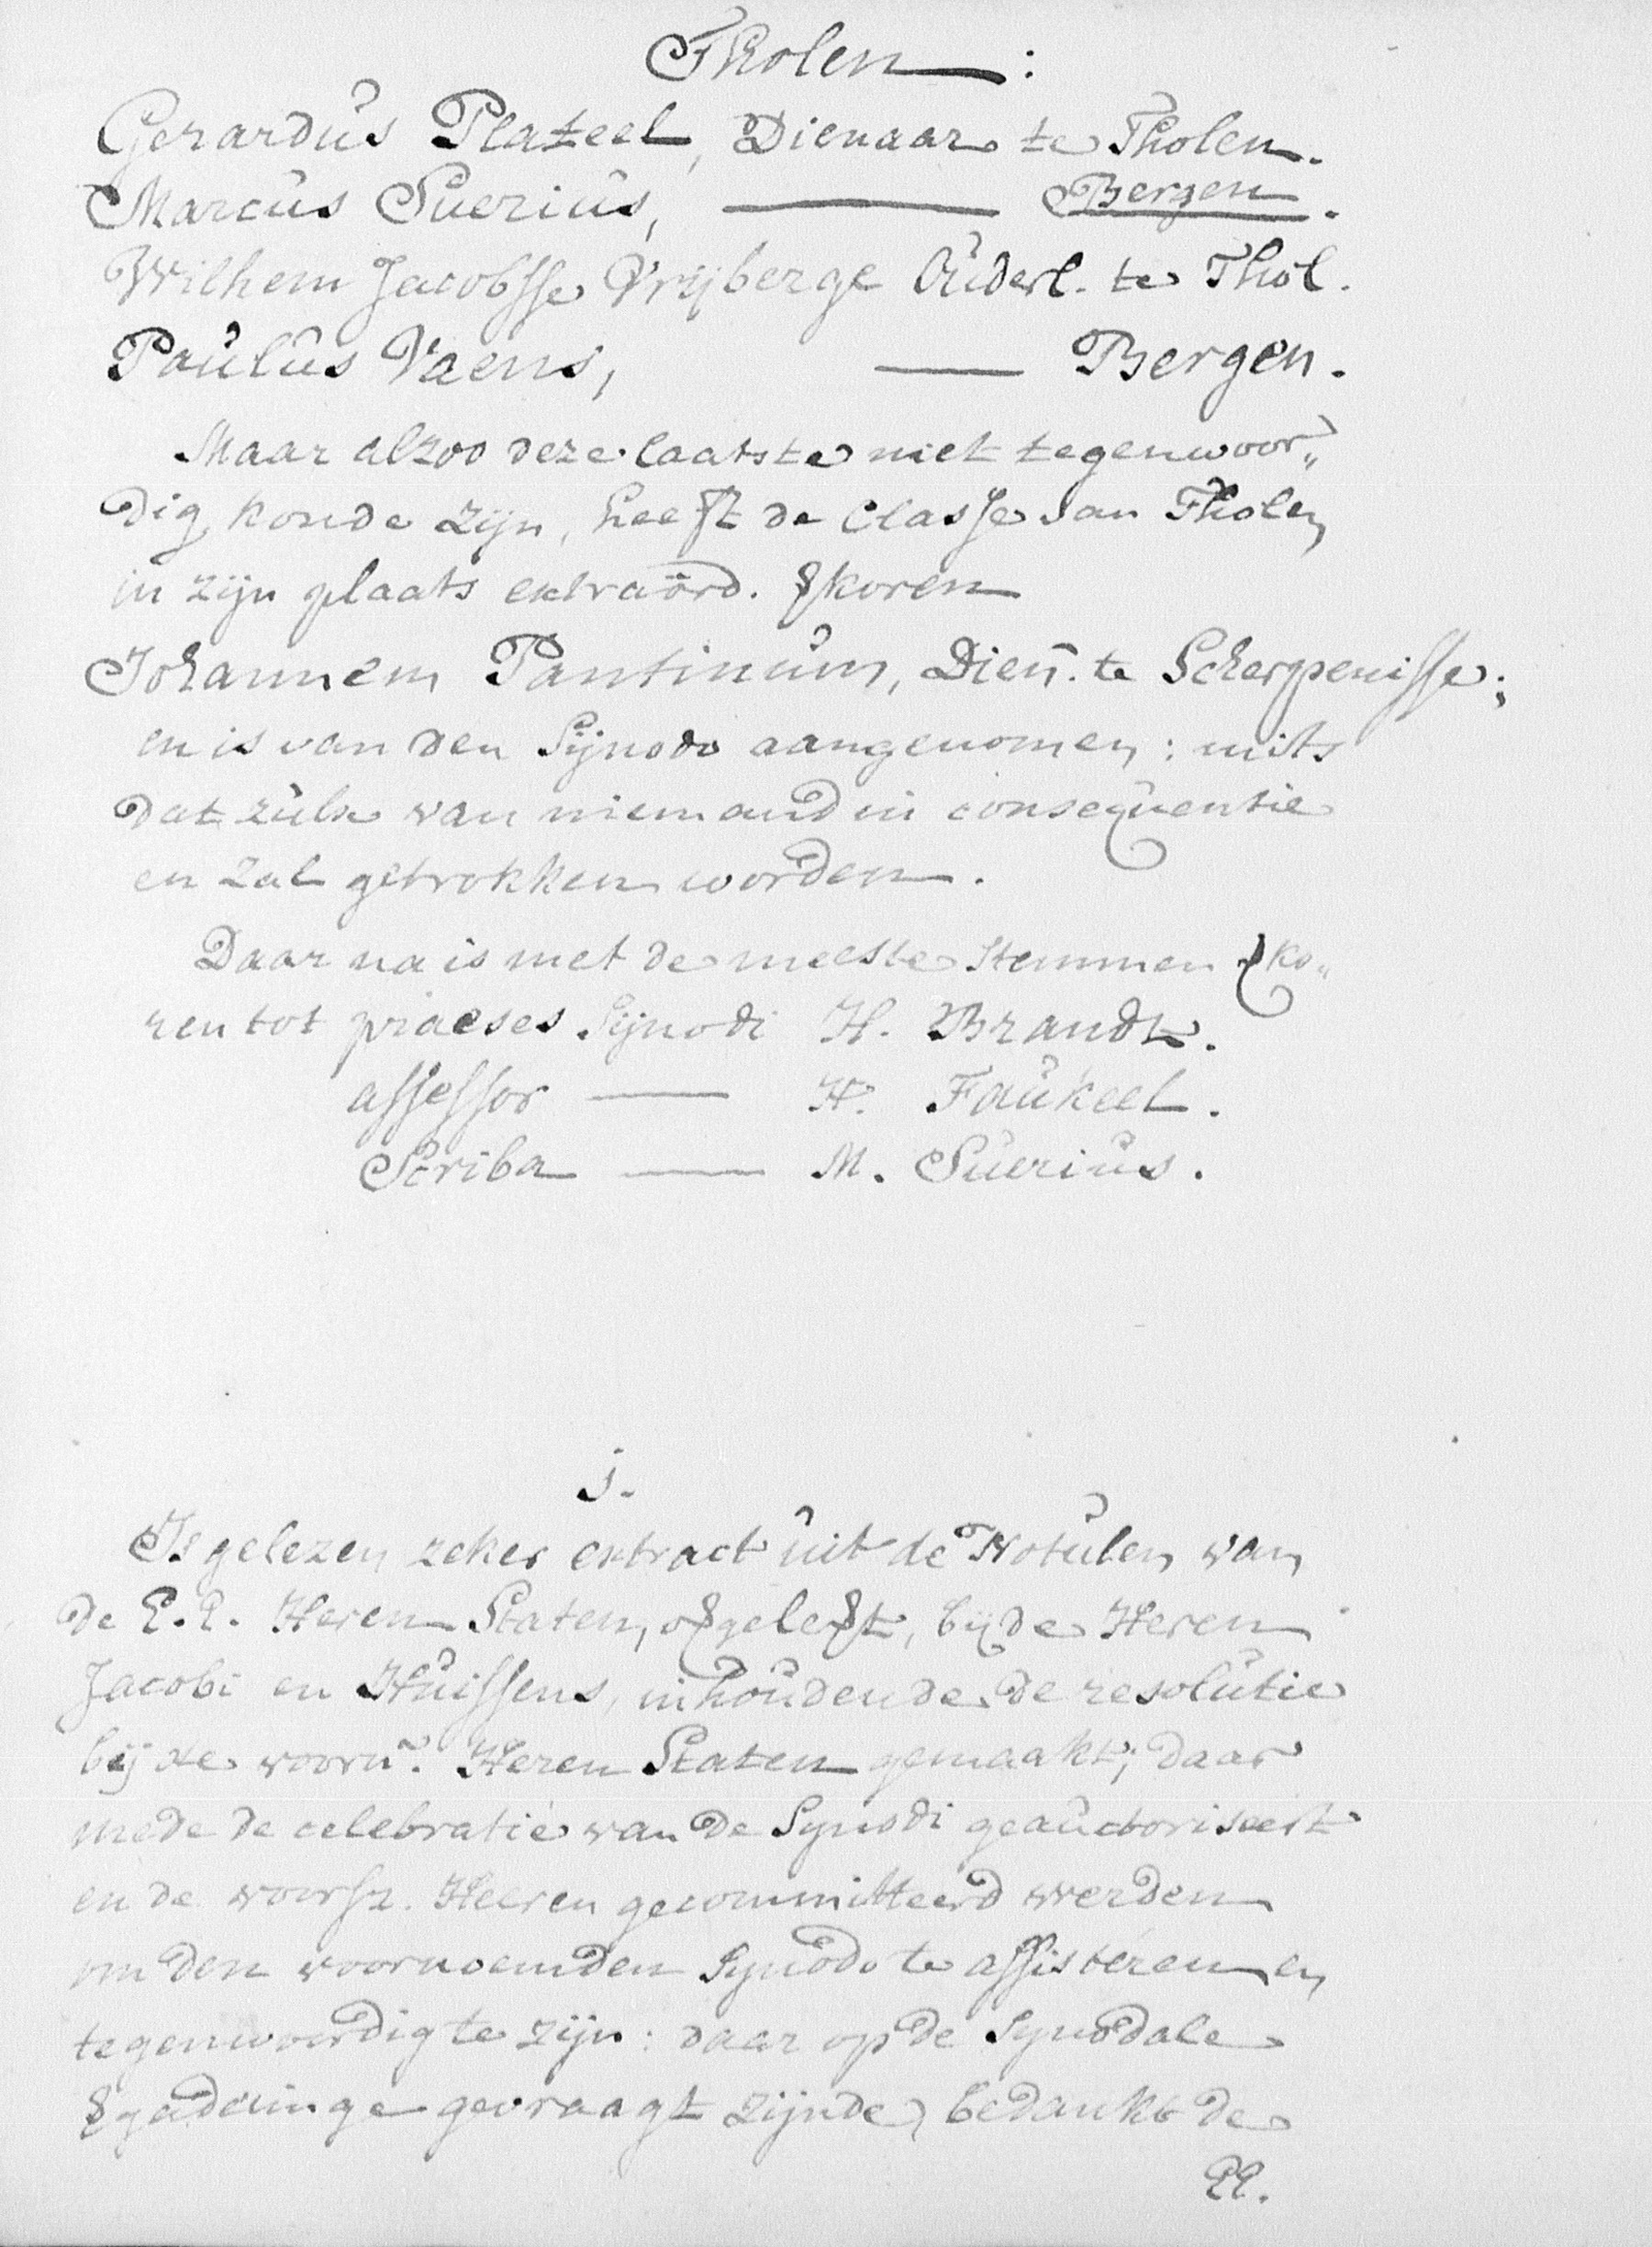 Tholen :
Gerardus Plateel, Dienaar te Tholen.
Marcus Suerius, —— Bergen.
Wilhem Jacobsse Vrijberge Ouderl. te Thol.
Paulus Vaens, —— Bergen.
Maar alzoo deze laatste niet tegenwoor„
dig konde zijn, heeft de Classe van Tholen
in zijn plaats extraörd. Vkoren
Johannem Pantinum, Dien. te Scherpenisse;
en is van den Sijnodo aangenomen: mits
dat zulx van niemand in consequentie
en zal getrokken worden.
Daar na is met de meeste stemmen Vko„
ren tot praeses Sijnodi H. Brandt.
assessor —— H. Faukeel.
Scriba —— M. Suerius.
1.
Is gelezen zeker extract uit de Notulen van
de E.E. Heren Staten, oVgeleVt, bij de Heren
Jacobi en Huissens, inhoudende de resolutie
bij de voorn. Heren Staten gemaakt; daar
mede de celebratie van de Synodi geauctoriseert
en de voorsz. Heeren gecommitteerd werden
om den voornoemden Synodo te assisteren en
tegenwoordig te zijn: daar op de Synodale
Vgaderinge gevraagt zijnde, bedankt de
EE.